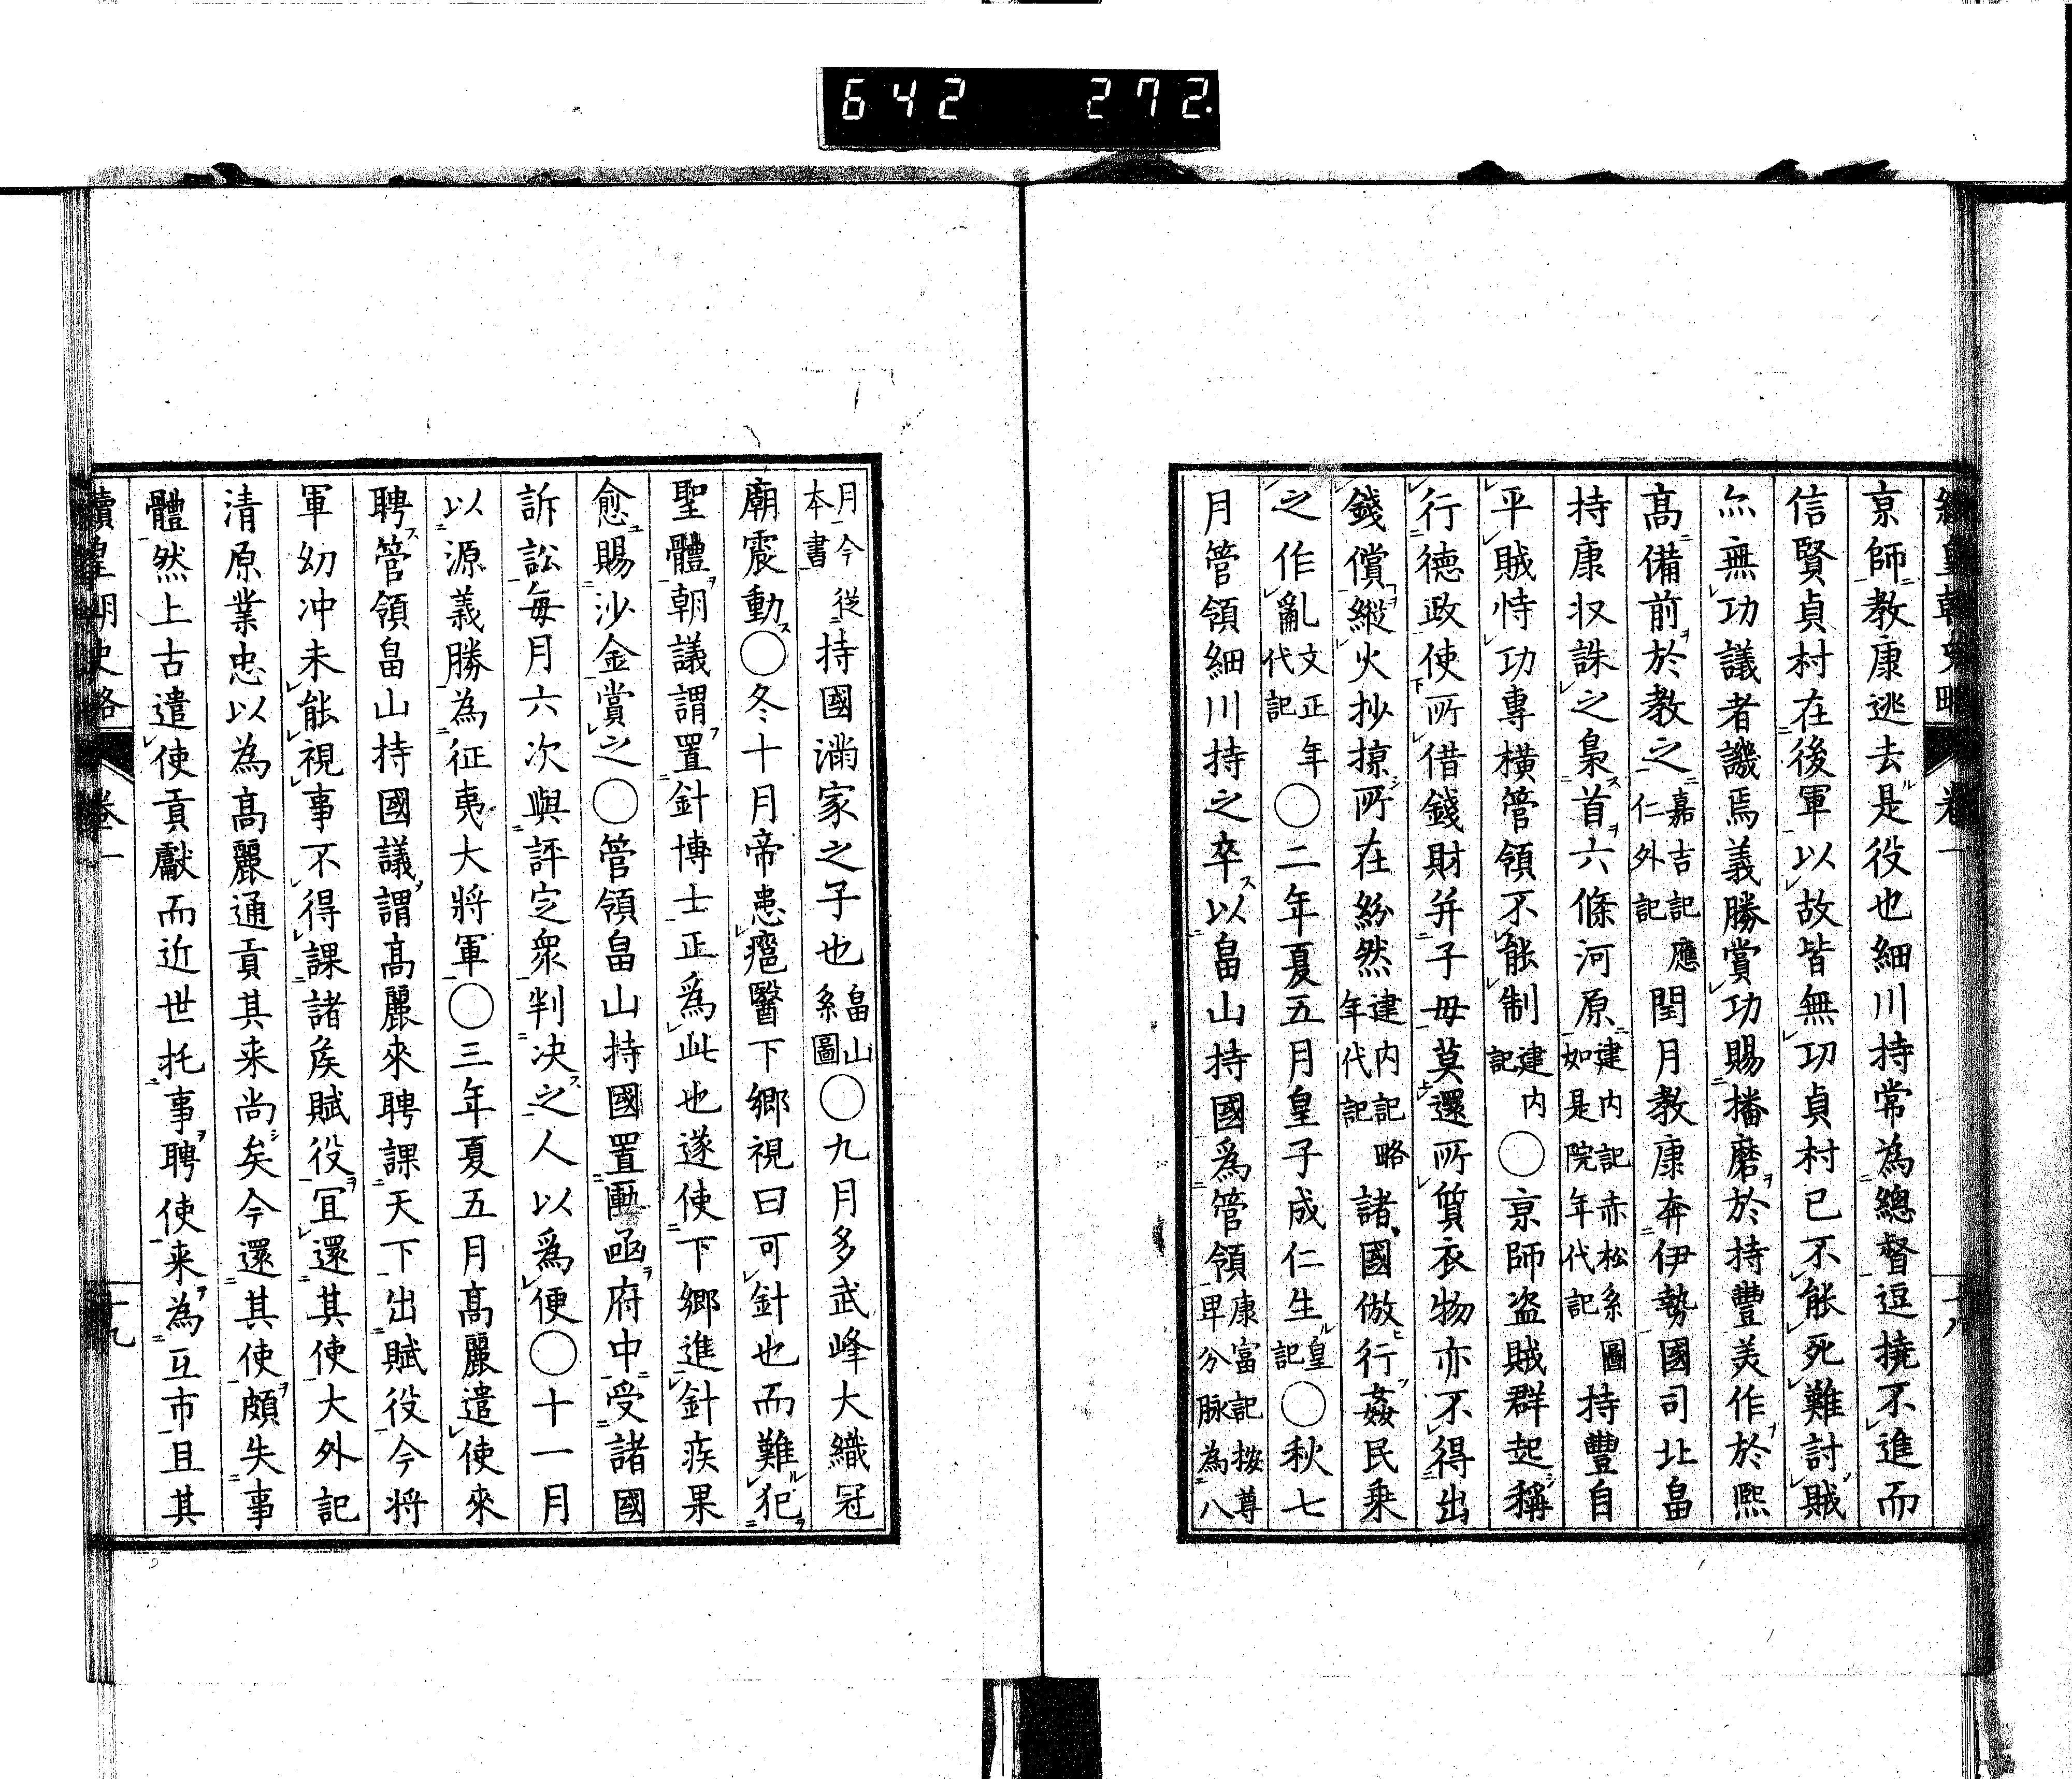 642 272.
續皇朝史略 卷一 十八
京師教康逃去是役也細川持常為總督逗撓不進而
信賢貞村在後軍以故皆無功貞村已不能死難討賊
亦無功議者譏焉義勝賞功賜播磨於持豐美作於熙
高備前於教之嘉吉記應仁外記閏月教康奔伊勢國司北畠
持康収誅之梟首六條河原建内記赤松系圖如是院年代記持豐自
平賊恃功專橫管領不能制建内記〇京師盗賊群起稱
行德政使所借錢財并子毋莫還所質衣物亦不得出
錢償縱火抄掠所在紛然建内記略年代記諸國倣行姦民乘
之作亂文正年代記〇二年夏五月皇子成仁生皇記〇秋七
月管領細川持之卒以畠山持國爲管領康富記按尊卑分脉為八
月今從本書持國滿家之子也畠山系圖〇九月多武峰大織冠
廟震動〇冬十月帝患瘡醫下郷視曰可針也而難犯
聖體朝議謂置針博士正爲此也遂使下郷進針疾果
愈賜沙金賞之〇管領畠山持國置匭函府中受諸國
訴訟每月六次與評定衆判决之人以爲便〇十一月
以源義勝為征夷大將軍〇三年夏五月高麗遣使來
聘管領畠山持國議謂高麗來聘課天下出賦役今將
軍幼冲未能視事不得課諸矦賦役宜還其使大外記
清原業忠以為高麗通貢其来尚矣今還其使頗失事
體然上古遣使貢獻而近世托事聘使来為互市且其
續皇朝史略 卷一 十九